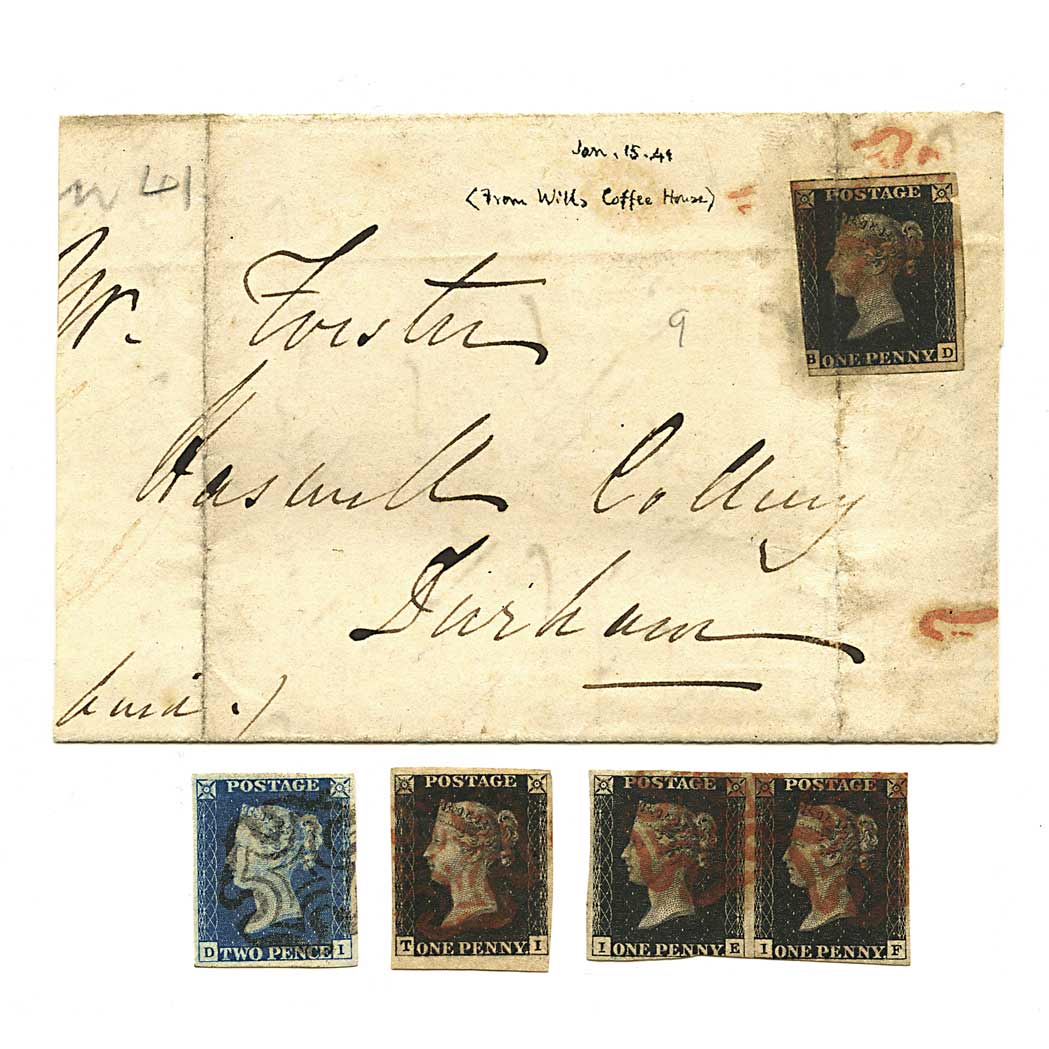 Jan. 15. 41
(From Wills Coffee House)
41
POSTAGE
ONE PENNY
B D
Mr. Forster
9
Haswell Colliery
Durham
POSTAGE
D TWO PENCE I
POSTAGE
T ONE PENNY I
POSTAGE
I ONE PENNY E
POSTAGE
I ONE PENNY F